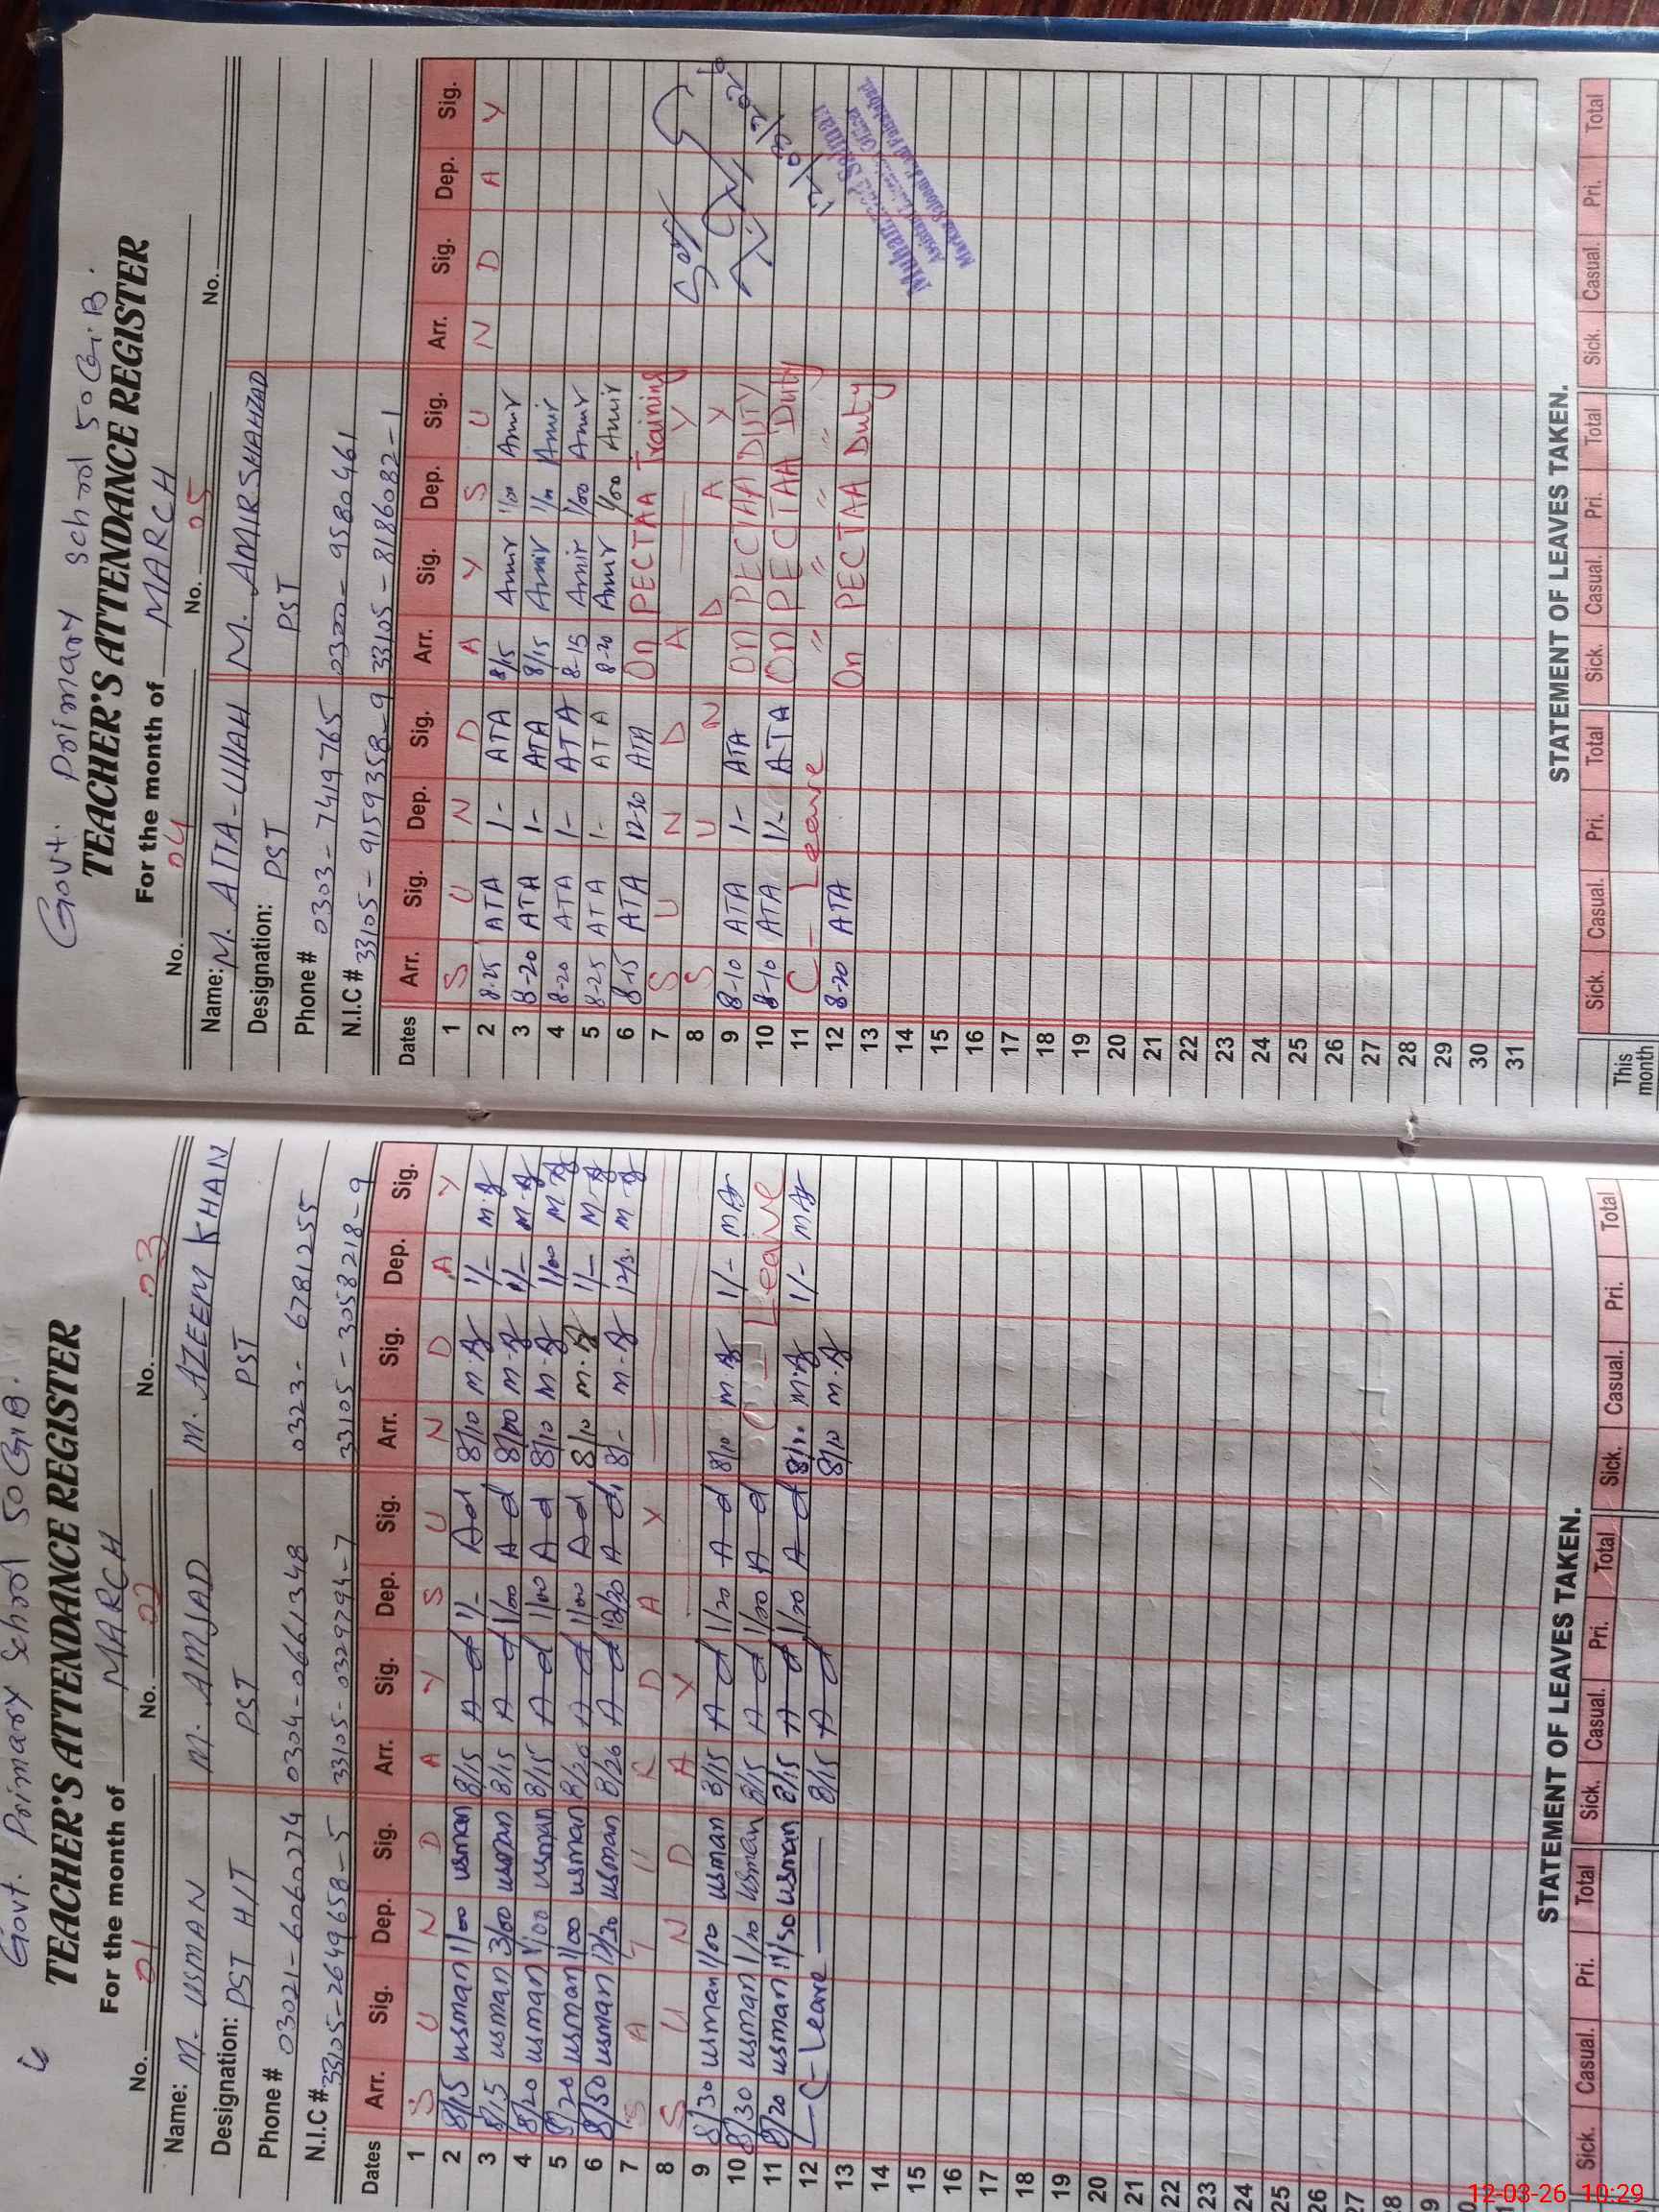 Govt. Primary School 50 G.B.
TEACHER'S ATTENDANCE REGISTER
For the month of MARCH
No. 01 No. 02 No. 03
Name: M. USMAN M. AMJAD M. AZEEM KHAN
Designation: PST H/T PST PST
Phone # 03021-6060274 0304-0661348 0323-6781255
N.I.C # 33105-2649658-5 33105-0329794-7 33105-3058218-9
Dates Arr. Sig. Dep. Sig. Arr. Sig. Dep. Sig. Arr. Sig. Dep. Sig.
1 S U N D A Y S U N D A Y
2 8/15 usman 1/00 usman 8/15 A d 1/- A d 8/10 M.A 1/- M.A
3 8/15 usman 3/00 usman 8/15 A d 1/00 A d 8/00 M.A 1/- M.A
4 8/20 usman 1/00 usman 8/15 A d 1/00 A d 8/10 M.A 1/00 M.A
5 8/20 usman 1/00 usman 8/20 A d 1/00 A d 8/10 M.A 1/- M.A
6 8/50 usman 12/30 usman 8/20 A d 12/30 A d 8/- M.A 12/3. M.A
7 S A T U R D A Y
8 S U N D A Y
9 8/30 usman 1/00 usman 8/15 A d 1/20 A d 8/10 M.A 1/- MA
10 8/30 usman 1/10 usman 8/15 A d 1/20 A d Leaive
11 8/20 usman 1/30 usman 8/15 A d 1/20 A d 8/10 M.A 1/- MA
12 C-Leave 8/15 A d 8/10 M.A
13
14
15
16
17
18
19
20
21
22
23
24
25
26
27
28
STATEMENT OF LEAVES TAKEN.
Sick. Casual. Pri. Total Sick. Casual. Pri. Total Sick. Casual. Pri. Total
Govt. Primary School 50 G.B.
TEACHER'S ATTENDANCE REGISTER
For the month of MARCH
No. 04 No. 05 No.
Name: M. ATTA-ULLAH M. AMIR SHAHZAD
Designation: PST PST
Phone # 0303-7419765 0300-9580461
N.I.C # 33105-9159358-9 33105-8186082-1
Dates Arr. Sig. Dep. Sig. Arr. Sig. Dep. Sig. Arr. Sig. Dep. Sig.
1 S U N D A Y S U N D A Y
2 8-25 ATA 1- ATA 8/15 Amir 1/00 Amir
3 8-20 ATA 1- ATA 8/15 Amir 1/00 Amir
4 8-20 ATA 1- ATA 8-15 Amir 1/00 Amir
5 8-25 ATA 1- ATA 8-20 Amir 1/00 Amir
6 8-15 ATA 12-30 ATA On PECTAA Training
7 S U N D A Y
8 S U N D A Y
9 8-10 ATA 1- ATA On PECTAA DUTY
10 8-10 ATA 1/- ATA On PECTAA Duty
11 C - Leave " " " "
12 8-20 ATA On PECTAA Duty
13
14
15
16
17
18
19
20
21
22
23
24
25
26
27
28
29
30
31
12/03/2026
Muhammad Salman
Assistant Education Officer
STATEMENT OF LEAVES TAKEN.
Sick. Casual. Pri. Total Sick. Casual. Pri. Total Sick. Casual. Pri. Total
This month
12-03-26 10:29